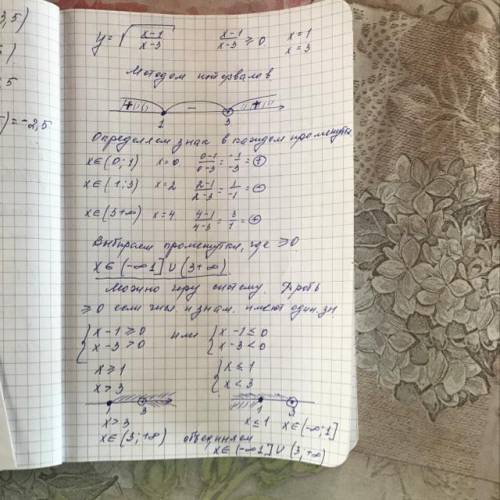 3,5)
,5
) = -2,5
y = √(x-1)/(x-3) (x-1)/(x-3) ≥ 0 x = 1
x = 3
Методом интервалов
+ - +
1 3
Определяем знак в каждом промежутке
x∈(0;1) x=0 (0-1)/(0-3) = (-1)/(-3) = +
x∈(1;3) x=2 (2-1)/(2-3) = 1/(-1) = -
x∈(3+∞) x=4 (4-1)/(4-3) = 3/1 = +
Выбираем промежутки, где ≥0
x∈(-∞1] ∪ (3+∞)
Можно через систему. Дробь
≥0 если числ и знам. имеют один. зн
{ x-1≥0 или { x-1≤0
x-3>0 x-3<0
x≥1 { x≤1
x>3 x<3
1 3 1 3
x>3 x≤1 x∈(-∞;1]
x∈(3;+∞) объединяем
x∈(-∞1] ∪ (3;+∞)